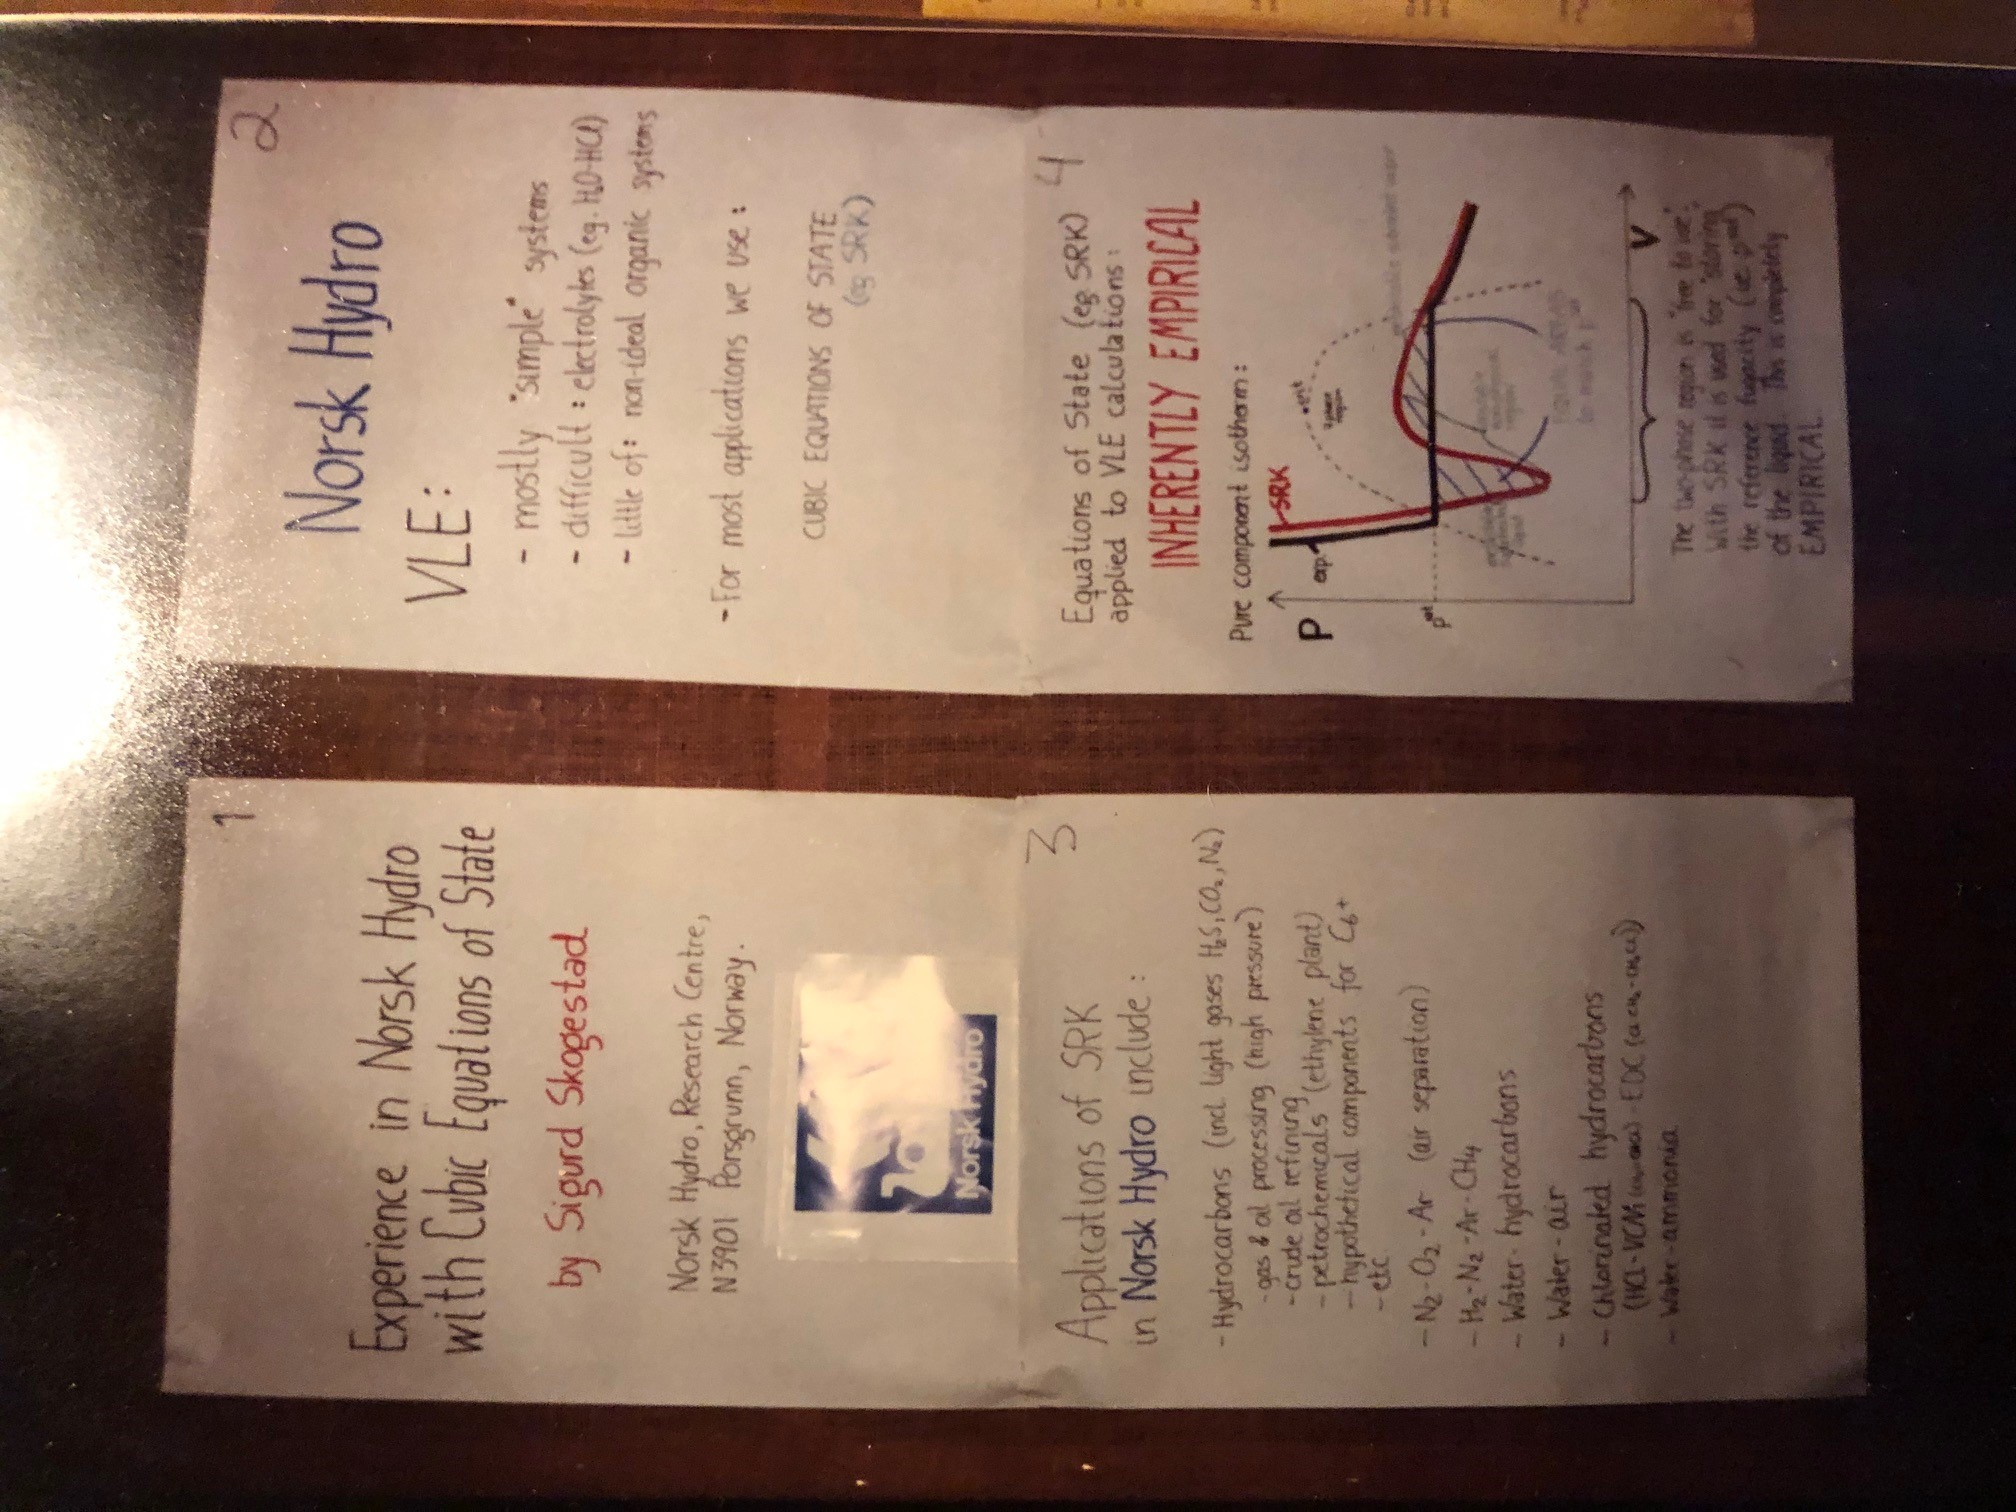 1
Experience in Norsk Hydro
with Cubic Equations of State
by Sigurd Skogestad
Norsk Hydro, Research Centre,
N3901 Porsgrunn, Norway.
Norsk Hydro
2
Norsk Hydro
VLE:
- mostly "simple" systems
- difficult: electrolytes (eg. H2O-HCl)
- little of: non-ideal organic systems
- For most applications we use:
CUBIC EQUATIONS OF STATE
(eg SRK)
3
Applications of SRK
in Norsk Hydro include:
- Hydrocarbons (incl. light gases H2S, CO2, N2)
- gas & oil processing (high pressure)
- crude oil refining
- petrochemicals (ethylene plant)
- hypothetical components for C6+
- etc
- N2-O2-Ar (air separation)
- H2-N2-Ar-CH4
- Water-hydrocarbons
- Water-air
- Chlorinated hydrocarbons
(HCl-VCM - EDC
- Water-ammonia
4
Equations of State (eg SRK)
applied to VLE calculations:
INHERENTLY EMPIRICAL
Pure component isotherm:
P
exp.
SRK
crit
psat
V
The two-phase region is "free to use".
With SRK it is used for "storing"
the reference fugacity (i.e. psat)
of the liquid. This is completely
EMPIRICAL